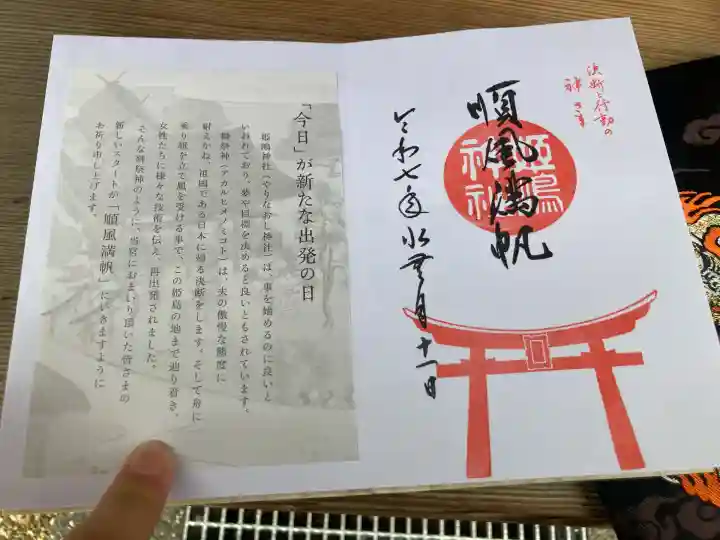 決断と行動の
神さま
順風満帆
姫嶋
神社
令和七年水無月十一日
「今日」が新たな出発の日
姫嶋神社(やりなおし神社)は、事を始めるのに良いと
いわれており、夢や目標を決めると良いともされています。
御祭神(アカルヒメノミコト)は、夫の傲慢な態度に
耐えかね、祖国である日本に帰る決断をします。そして舟に
乗り帆を立て風を受ける事で、この姫島の地まで辿り着き、
女性たちに様々な技術を伝え、再出発されました。
そんな御祭神のように、当宮におまいり頂いた皆さまの
新しいスタートが「順風満帆」にいきますように
お祈り申し上げます。